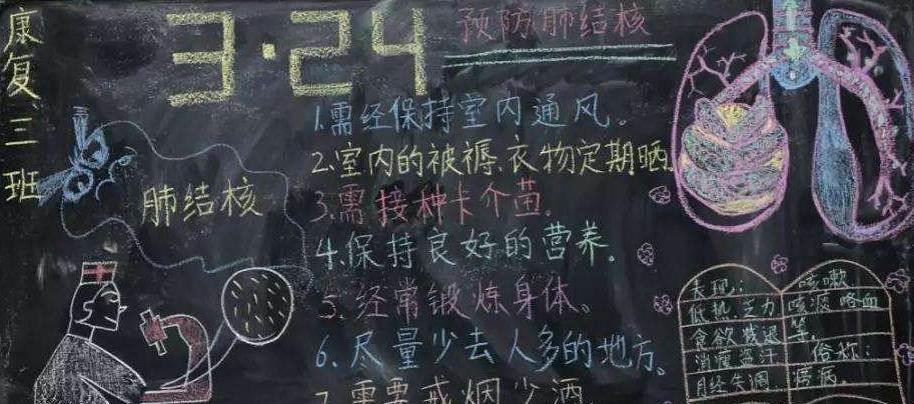 康复三班
3·24
预防肺结核
肺结核
1.需经保持室内通风。
2.室内的被褥、衣物定期晒
3.需接种卡介苗.
4.保持良好的营养。
5.经常锻炼身体。
6.尽量少去人多的地方。
7.需要戒烟少酒.
表现:
低热、乏力
食欲减退
消瘦盗汗
月经失调
咳嗽
咳痰咯血
等.
俗称:
痨病.